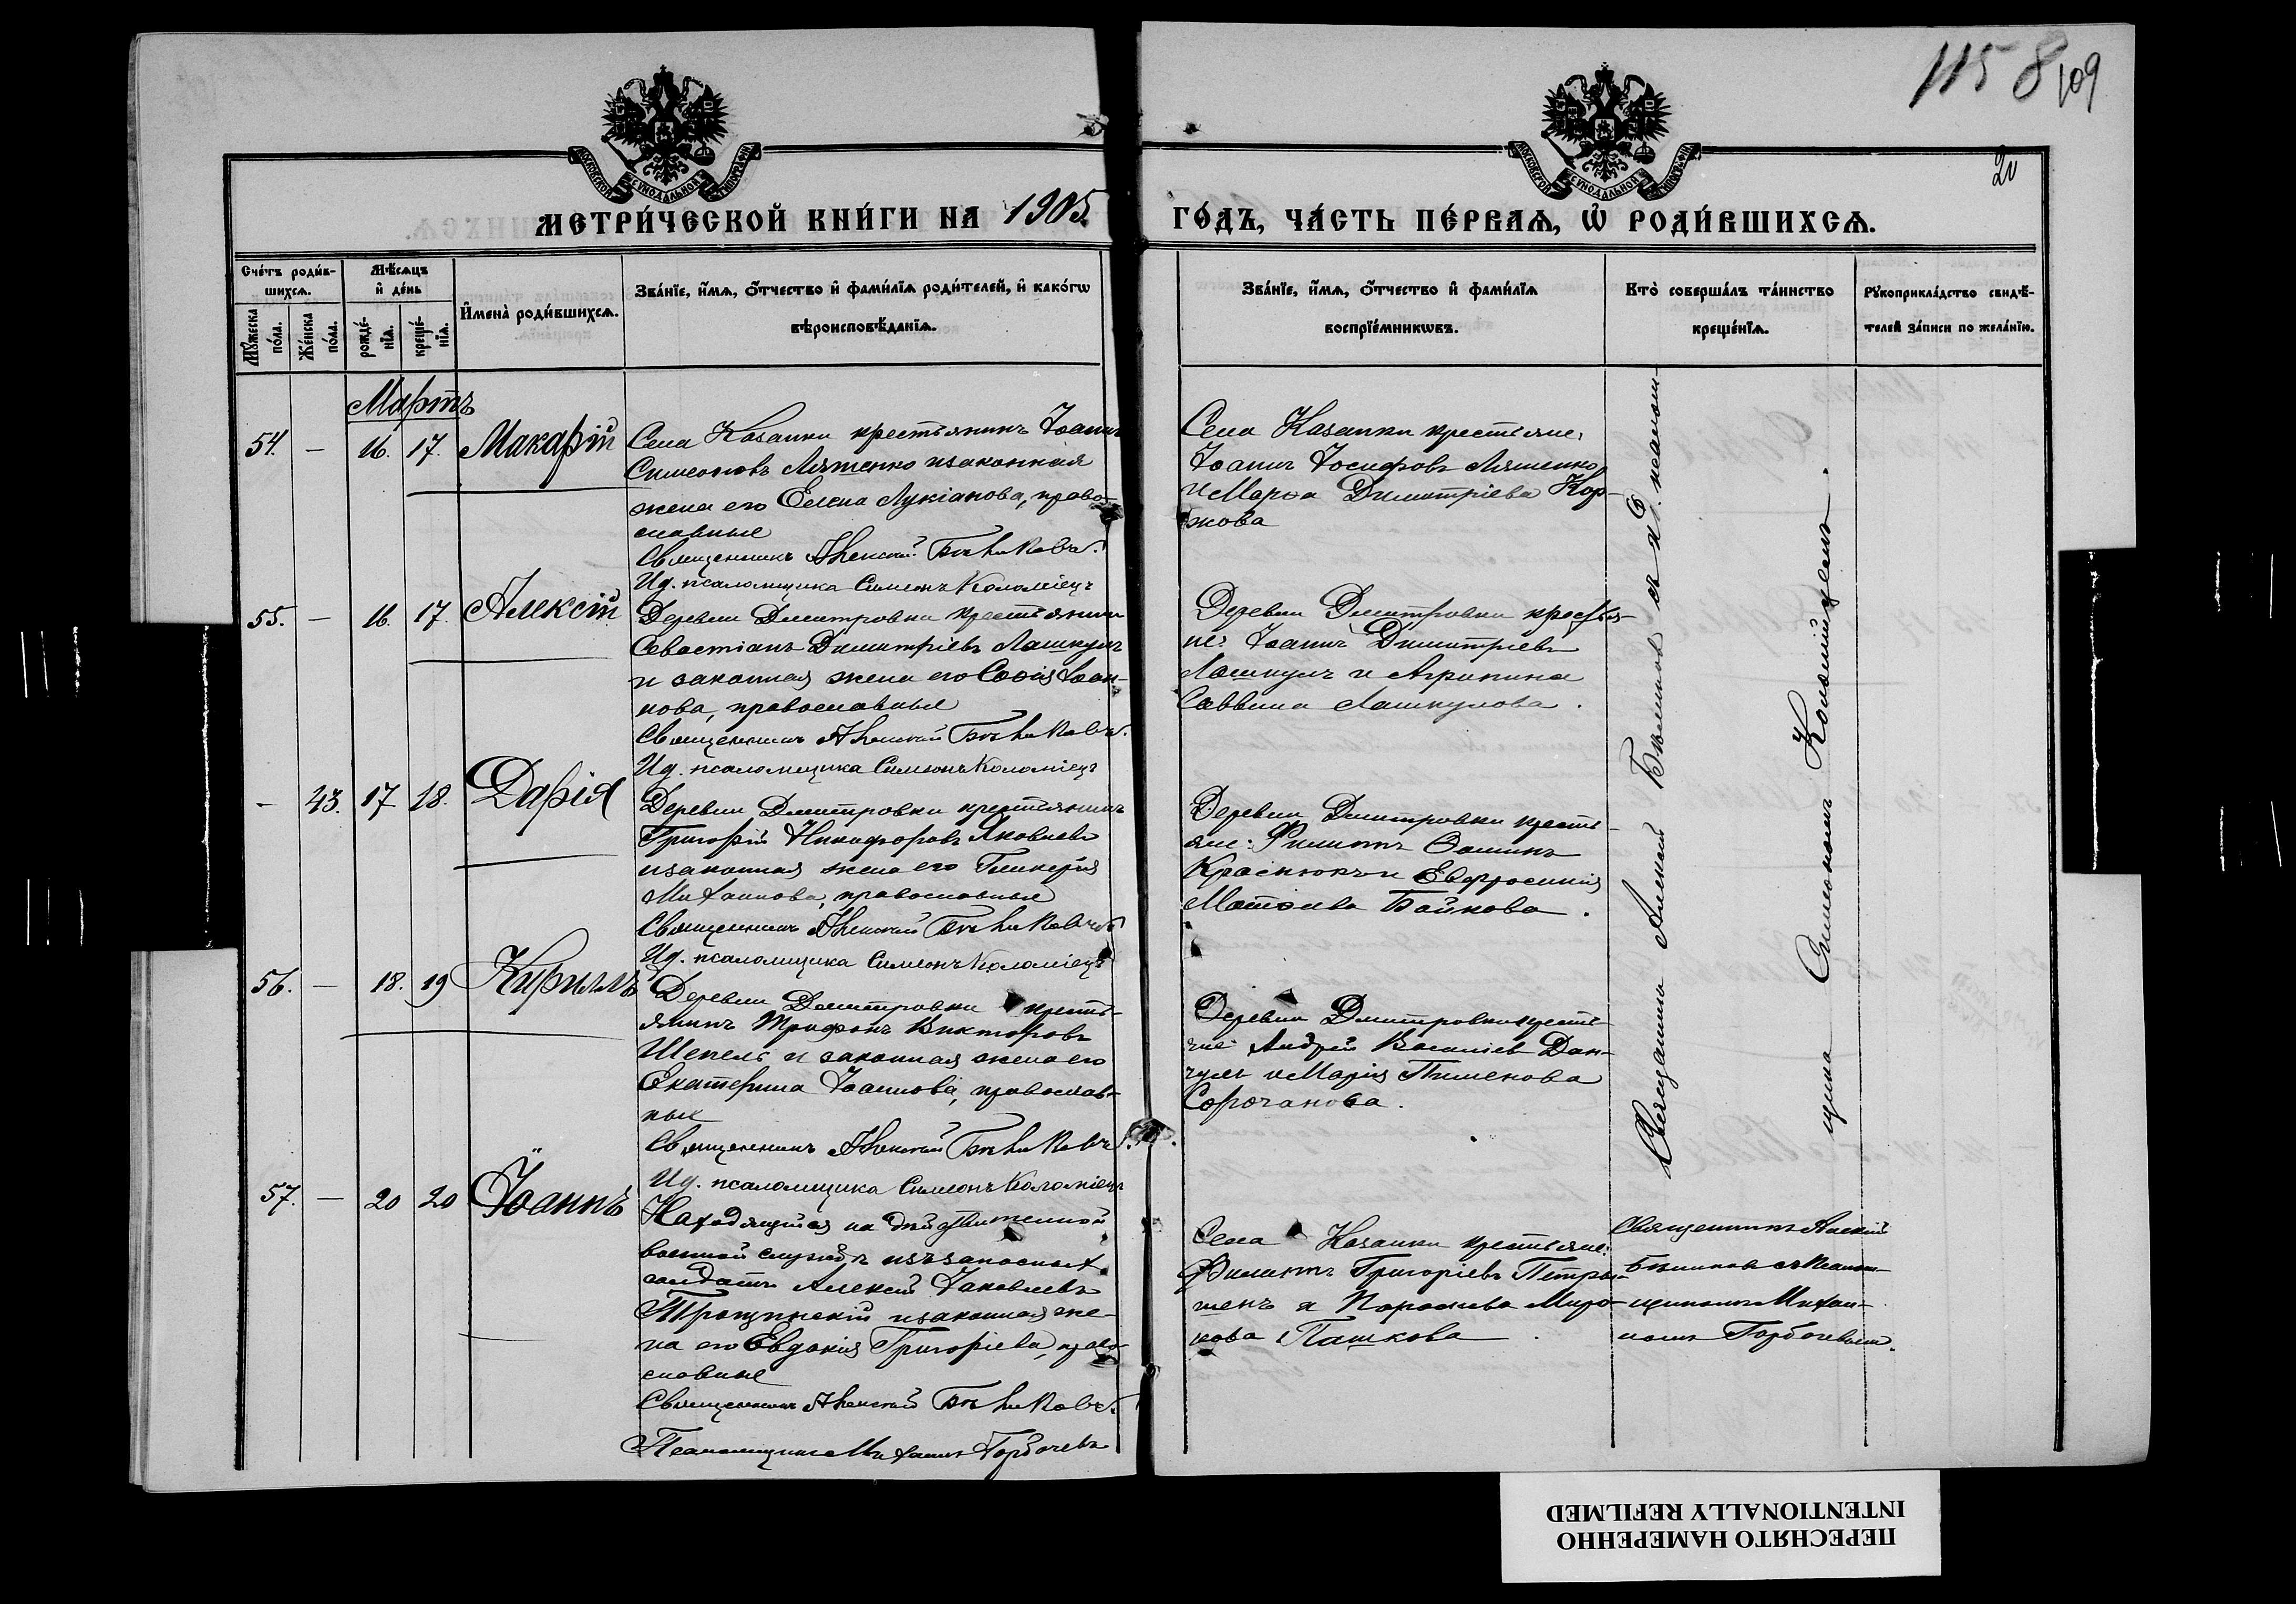 115 8 109
20
МОСКОВСКОЙ СѴНОДАЛЬНОЙ ТИПОГРАФІИ
МОСКОВСКОЙ СѴНОДАЛЬНОЙ ТИПОГРАФІИ
МЕТРИ́ЧЕСКОЙ КНИ́ГИ НА 1905
ГО́ДЪ, ЧА́СТЬ ПЕ́РВАѦ, Ѽ РОДИ́ВШИХСѦ.
Сче́тъ роди́в-
шихсѧ.
Мꙋ́жеска по́ла.
Же́нска по́ла.
Мѣ́сѧцъ
и҆ де́нь
рожде́-
нїѧ.
креще́-
нїѧ.
И҆мена̀ роди́вшихсѧ.
Зва́нїе, и҆́мѧ, ѻ҆́тчество и҆ фами́лїѧ роди́телей, и҆ како́гѡ
вѣроисповѣ́данїѧ.
Зва́нїе, и҆́мѧ, ѻ҆́тчество и҆ фами́лїѧ
воспрїе́мникѡвъ.
Кто̀ соверша́лъ та́инство
креще́нїѧ.
Рꙋкоприкла́дство свидѣ́-
телей за́писи по жела́нїю.
Мартъ
54. — 16. 17. Макарій
Села Казанки крестьянинъ Іоаннъ
Симеоновъ Ляшенко и законная
жена его Елена Лукіанова, право-
славные
Священникъ Алексій Бѣликовъ.
Ид. псаломщика Симеонъ Коломіецъ
Села Казанки крестьяне:
Іоаннъ Іосифовъ Ляшенко
и Марѳа Димитріева Кор-
жова
55. — 16. 17. Алексій
Деревни Дмитровки крестьянинъ
Севастіанъ Димитріевъ Лашкулъ
и законная жена его Софія Іоан-
нова, православные
Священникъ Алексій Бѣликовъ.
Ид. псаломщика Симеонъ Коломіецъ
Деревни Дмитровки крестья-
не: Іоаннъ Димитріевъ
Лашкулъ и Агрипина
Саввина Лашкулова.
— 43. 17 18. Дарія
Деревни Дмитровки крестьянинъ
Григорій Никифоровъ Яковлевъ
и законная жена его Гликерія
Михаилова, православные
Священникъ Алексій Бѣликовъ
Ид. псаломщика Симеонъ Коломіецъ
Деревни Дмитровки кресть-
яне: Филиппъ Ѳоминъ
Краснюкъ и Евфросинія
Матѳеева Байкова.
56. — 18. 19 Кириллъ
Деревни Дмитровки кресть-
янинъ Трифонъ Викторовъ
Шепель и законная жена его
Екатерина Іоаннова, православ-
ные
Священникъ Алексій Бѣликовъ.
Ид. псаломщика Симеонъ Коломіецъ
Деревни Дмитровки кресть-
яне: Андрей Василіев
и Марія Пименова
Сорочанова.
Священникъ Алексій Бѣликовъ съ и. д. псалом-
щика Симеономъ Коломійцемъ.
57. — 20 20 Іоаннъ
Находящійся на дѣйствительной
военной службѣ изъ запасныхъ
солдатъ Алексій Іаковлевъ
Трощинскій и законная же-
на его Евдокія Григоріева, право-
славные
Священникъ Алексій Бѣликовъ.
Псаломщикъ Михаилъ Горбачевъ
Села Казанки крестьяне:
Филиппъ Григоріевъ
и Параскева Миро-
нова Пашкова.
Священникъ Алексій
Бѣликовъ съ псалом-
щикомъ Михаи-
ломъ Горбачевымъ.
ПЕРЕСНЯТО НАМЕРЕННО
INTENTIONALLY REFILMED